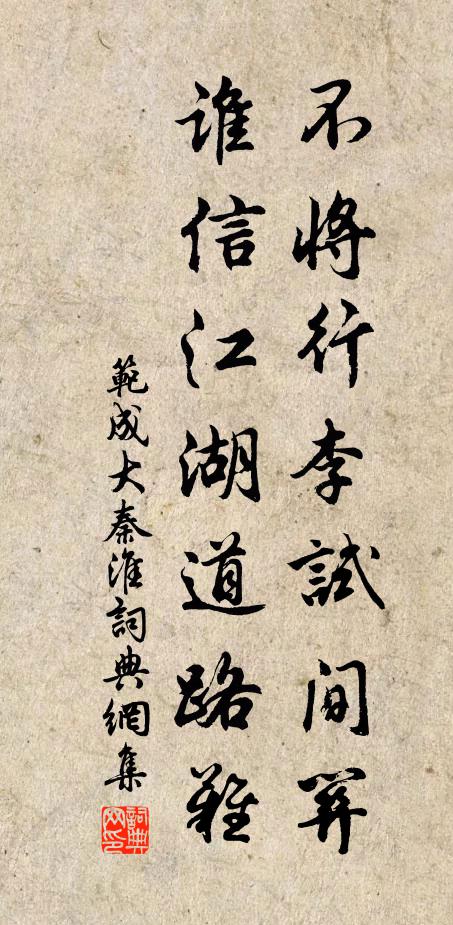 不將行李試間關
誰信江湖道路難
範成大秦淮詞典網集
詞典网印